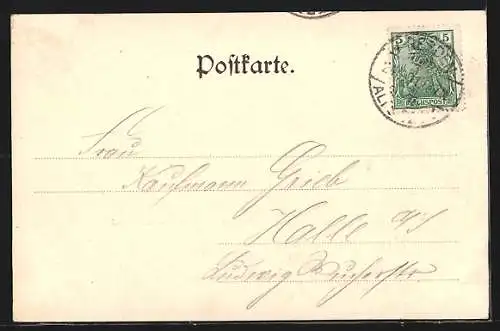 Postkarte.
5 5
DRESDEN
ALT
REICHSPOST
Frau
Kaufmann Grieb
Halle a/S
Ludwig Wucherstr